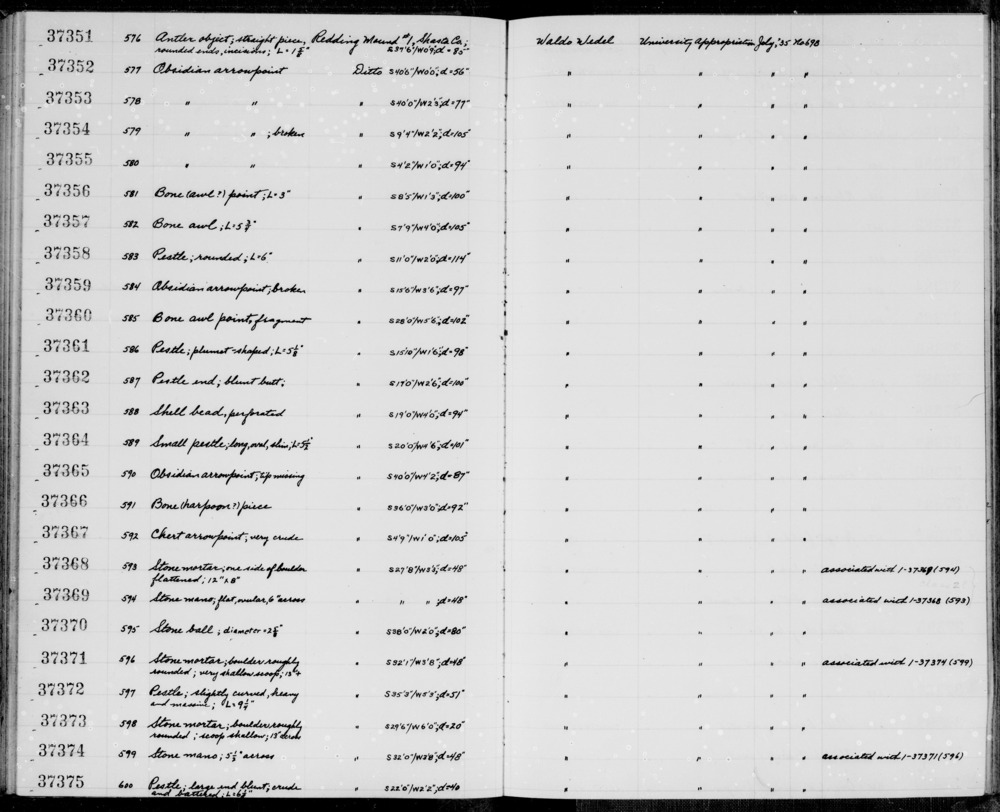 37351 576 Antler object; straight piece, Redding Mound #1, Shasta Co.; Waldo Wedel University Appropriation July, '35 No 69B
rounded ends, incisions; L = 1 S37'6"/W0'9"; d = 85"
37352 577 Obsidian arrowpoint Ditto S40'6"/W0'0"; d=56" " " " "
37353 578 " " " S40'0"/W2'3"; d=77" " " " "
37354 579 " " ; broken " S9'4"/W2'2"; d=105" " " " "
37355 580 " " " S4'2"/W1'0"; d=94" " " " "
37356 581 Bone (awl?) point; L=3" " S8'5"/W1'3"; d=100" " " " "
37357 582 Bone awl; L=5 " S7'9"/W4'0"; d=105" " " " "
37358 583 Pestle; rounded; L=6" " S11'0"/W2'0"; d=114" " " " "
37359 584 Obsidian arrowpoint; broken " S15'6"/W3'6"; d=97" " " " "
37360 585 Bone awl point, fragment " S28'0"/W5'6"; d=102" " " " "
37361 586 Pestle; plumet-shaped; L=5 " S15'10"/W1'6"; d=98" " " " "
37362 587 Pestle end; blunt butt; " S17'0"/W2'6"; d=100" " " " "
37363 588 Shell bead, perforated " S19'0"/W4'0"; d=94" " " " "
37364 589 Small pestle; long, oval, slim; L=5 " S20'0"/W4'6"; d=101" " " " "
37365 590 Obsidian arrowpoint; tip missing " S40'0"/W4'2"; d=87" " " " "
37366 591 Bone (harpoon?) piece " S36'0"/W3'0"; d=92" " " " "
37367 592 Chert arrowpoint, very crude " S4'9"/W1'0"; d=105" " " " "
37368 593 Stone mortar; one side of boulder " S27'8"/W3'5"; d=48" " " " " associated with 1-37369 (594)
flattened; 12" x 8"
37369 594 Stone mano; flat, ovular, 6" across " " " ; d=48" " " " " associated with 1-37368 (593)
37370 595 Stone ball; diameter = 2 " S38'0"/W2'0"; d=80" " " " "
37371 596 Stone mortar; boulder roughly " S32'1"/W3'8"; d=48" " " " " associated with 1-37374 (599)
rounded; very shallow scoop; 13"+
37372 597 Pestle; slightly curved, heavy " S35'3"/W5'3"; d=51" " " " "
and massive; L=9
37373 598 Stone mortar; boulder roughly " S29'6"/W6'0"; d=20" " " " "
rounded; scoop shallow; 13" across
37374 599 Stone mano; 5½" across " S32'0"/W3'8"; d=48" " " " " associated with 1-37371 (596)
37375 600 Pestle; large end blunt; crude " S22'0"/W2'2"; d=40 " " " "
and battered; L=6